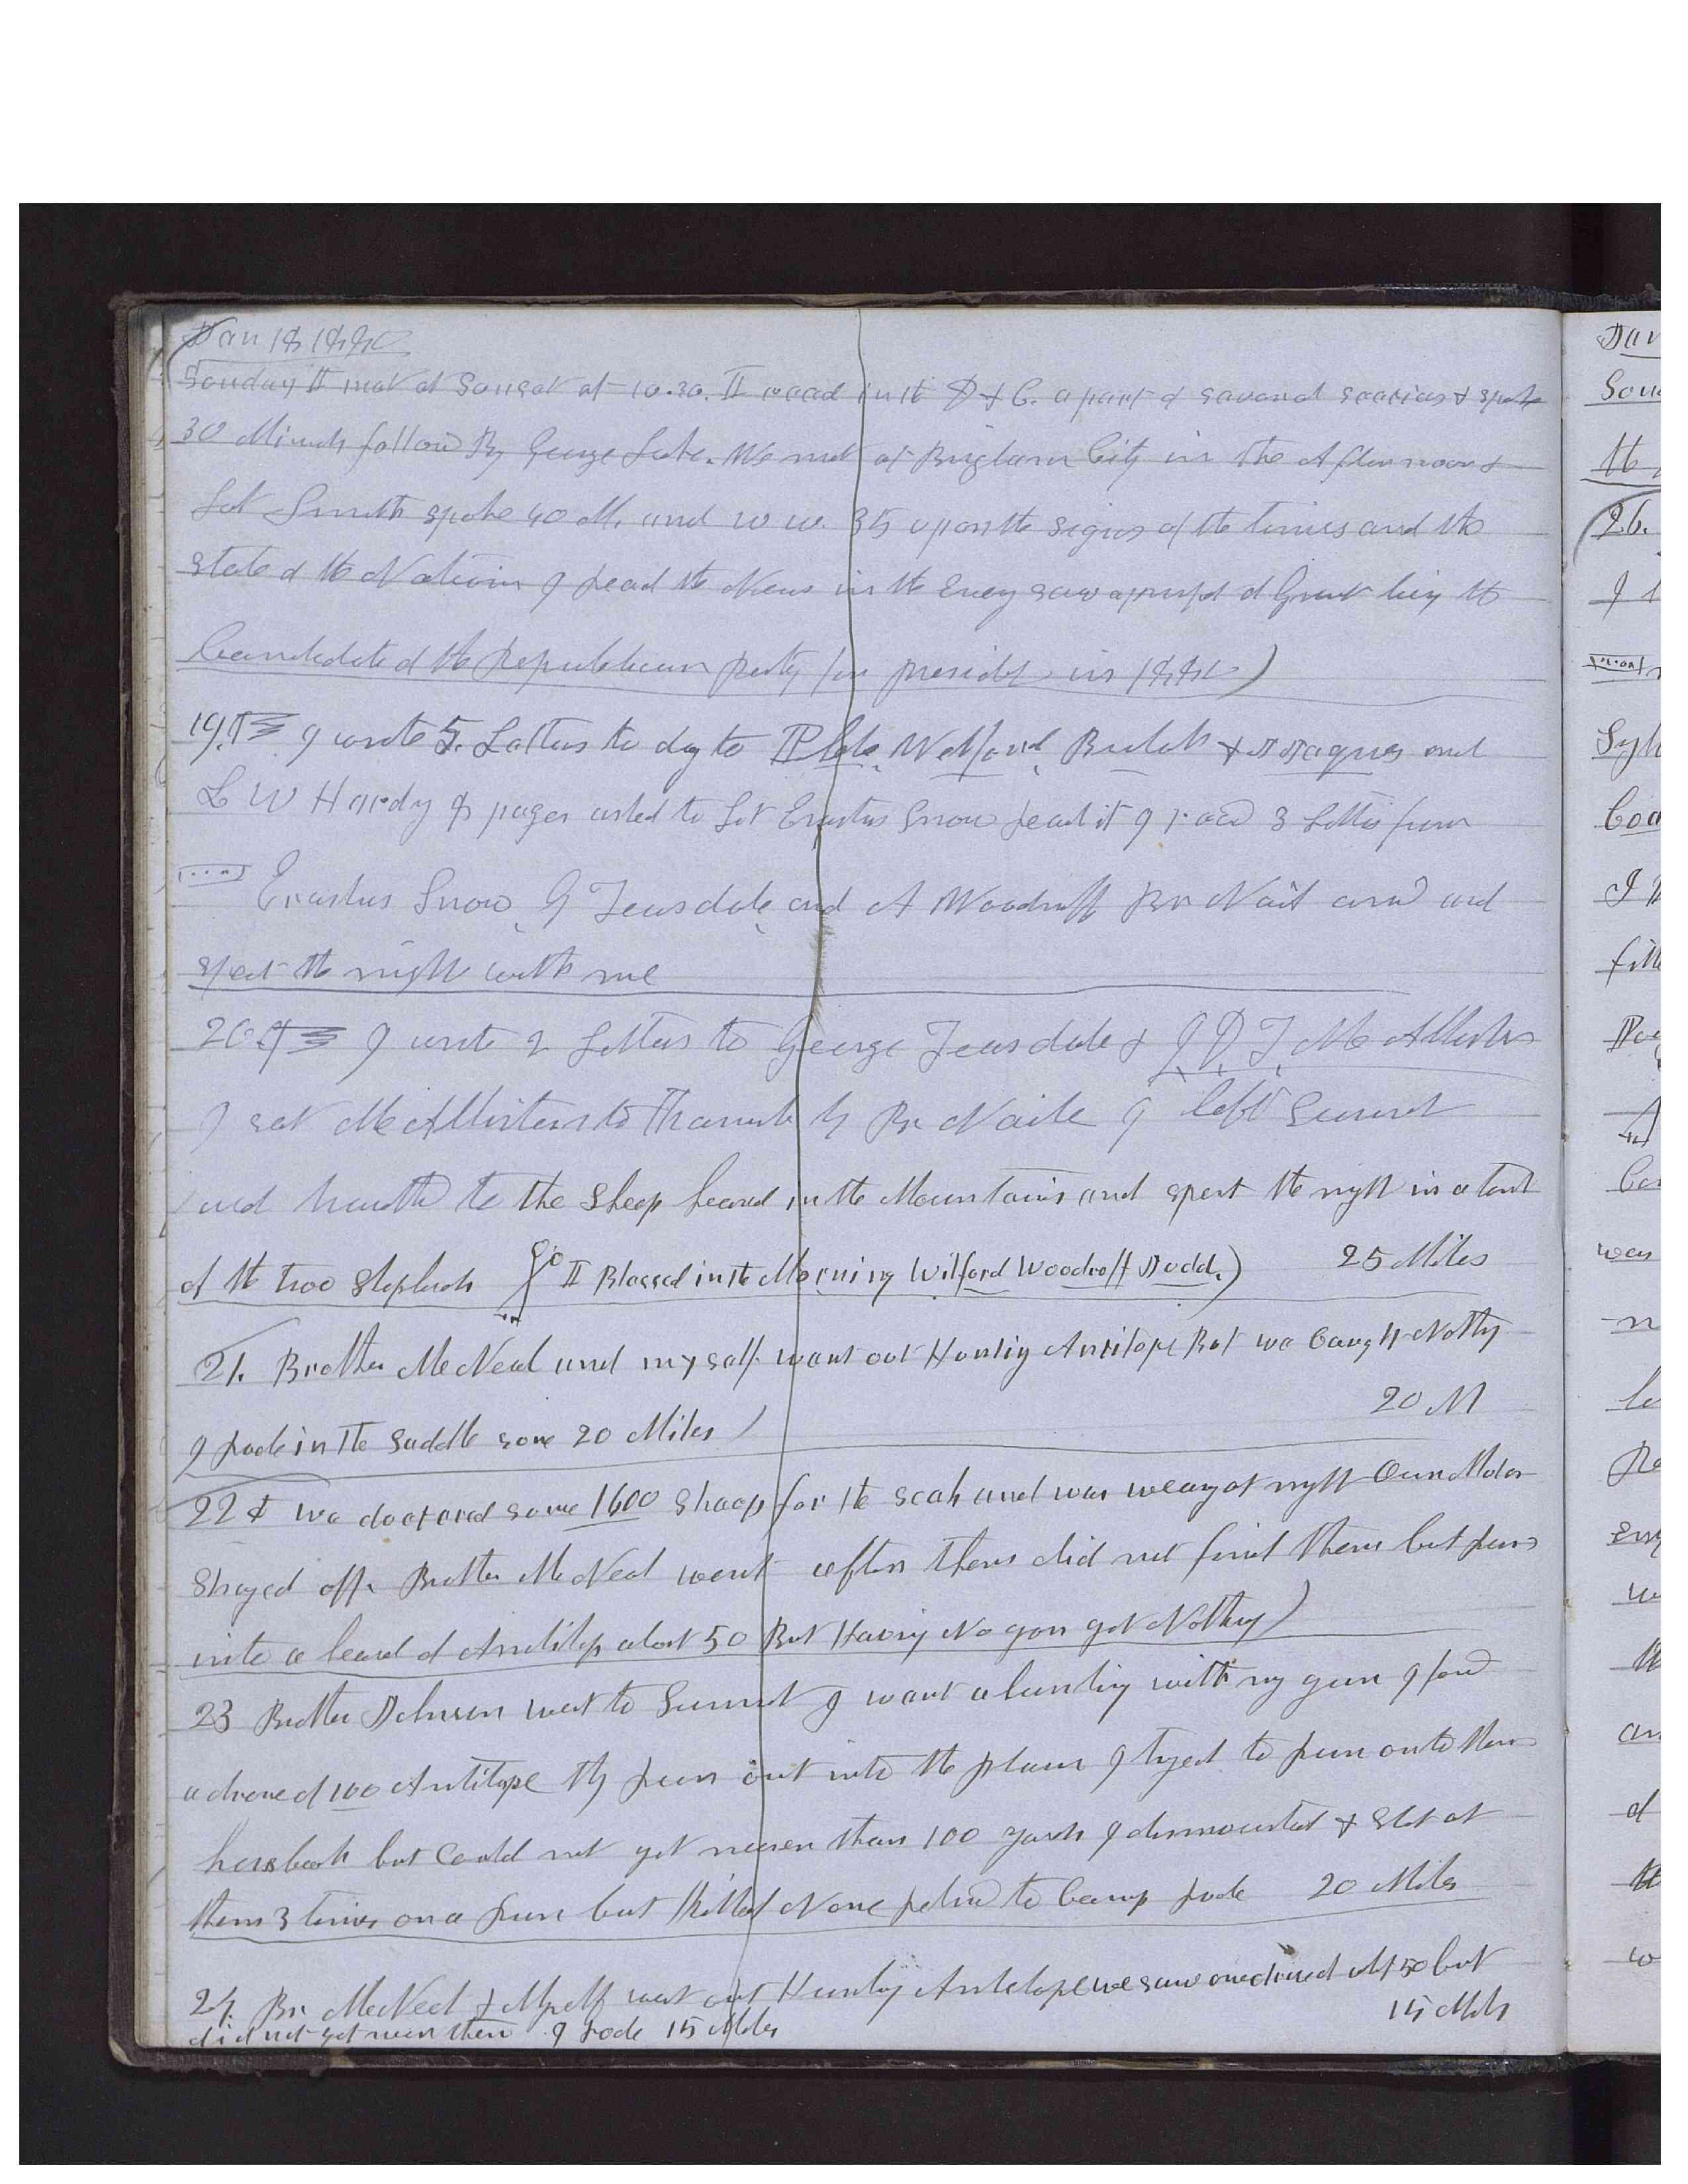 Jan 18 1880
Sunday I met at Sunset at 10.30. I read in the D & C. a part of several & spoke
30 Minuts followd By George Lake. We met at Brigham City in the Afternoon &
Lot Smith spoke 40 M. and W W. 35 upon the signs of the times and the
State of the Nation I read the News in the Eveng saw a prospt of Grant being the
Candidate of the Republican party for presidt in 1880)
19th I wrote 5. Letters to day to Phebe, Wilford, Bulah & Jaques and
L W Hardy 8 pages also to Erastus Snow read it I recd 3 Letters from
Erastus Snow, G Teasdale, and A Woodruff Br Nail arivd and
spent the night with me
20th I wrote 2 Letters to George Teasdale & J, D, T, McAllister
I sent McAllisters to by Br Naile I left Sunset
and travelled to the Sheep heard in the Mountains and spent the night in a tent
of the two Shepherds I Blessed in the Morning Wilford Woodruff Dodd.) 25 Miles
21. Brother McNeal and myself went out Hunting Antilope But we Caught Nothing
20 M
I rode in the Saddle some 20 Miles)
22d we doctored some 1600 Sheep for the scab and was weary at night Our Mules
Strayed off. Brother McNeal went after them did not find them but run
into a heard of Antilop about 50 But Having No gun got Nothing)
23 Brother Johnson went to Sunset I went a hunting with my gun I found
a drove of 100 Antilope they run out into the plain I tryed to run onto them
horsback but Could not get nearer than 100 yards I dismounted & Shot at
them 3 times on a run but killed None returnd to Camp rode 20 Miles
24. Br. McNeal & Myself went out Hunting Antelope we saw one drove of 50 but
15 Mils
did not get near them I rode 15 Miles